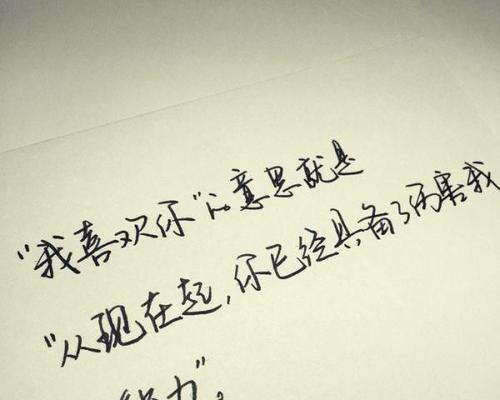 “我喜欢你”的意思就是
“从现在起,你已经具备了伤害我
能力”。